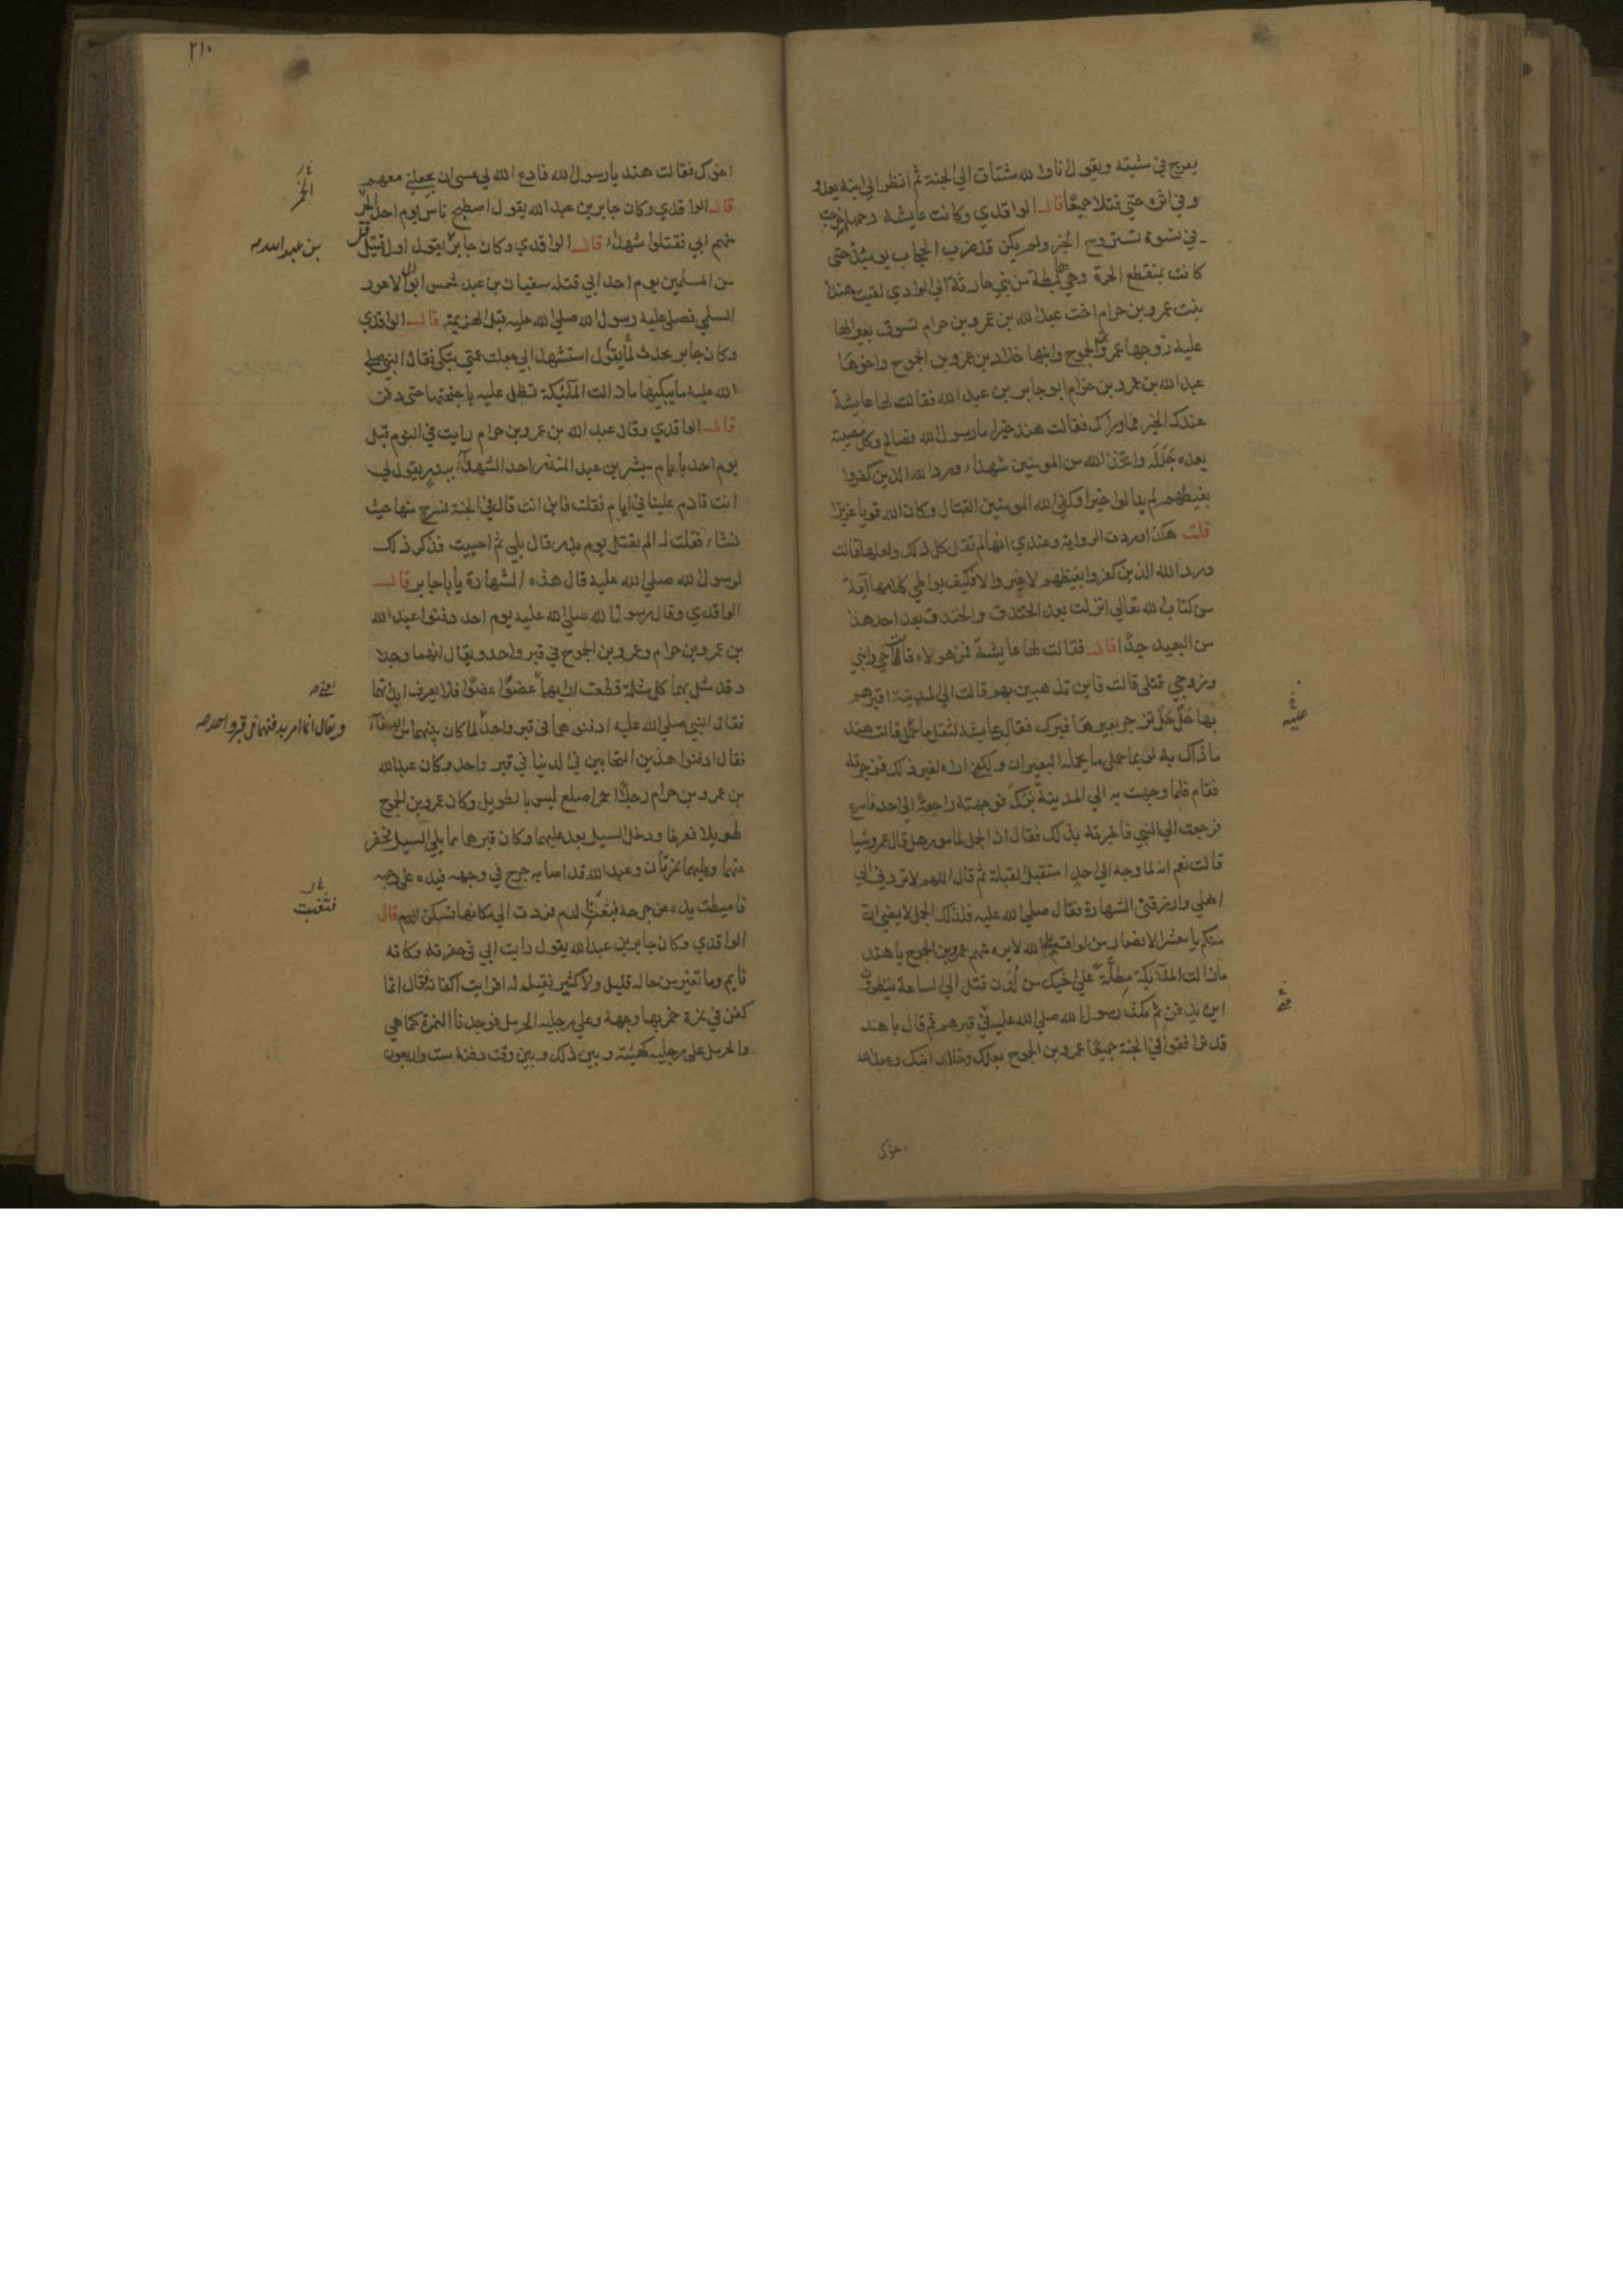 يعرج في مشيته ويقول انا والله مشتاق الي الجنة ثم انظر الي ابنه يعدو
وفي اثره حتي قتلا جميعا قال الواقدي وكانت عايشة خرجت
في نسوة تستروح الخبر ولم يكن قد ضرب الحجاب يومئذ حتي
كانت بمنقطع الحرة وهي هابطة من بني حارثة الي الوادي لقيت هندا
بنت عمرو بن حرام اخت عبد الله بن عمرو بن حرام تسوق بعيرا لها
عليه زوجها عمرو بن الجموح وابنها خلاد بن عمرو بن الجموح واخوها
عبد الله بن عمرو بن حرام ابو جابر بن عبد الله فقالت لها عايشة
عندك الخبر فما وراك فقالت هند خيرا ما رسول الله فصالح وكل مصيبة
بعده جلل واتخذ الله من المومنين شهداء ورد الله الذين كفروا
بغيظهم لم ينالوا خيرا وكفي الله المومنين القتال وكان الله قويا عزيزا
قلت هكذا وردت الرواية وعندي انها لم تقل كل ذلك ولعلها قالت
ورد الله الذين كفروا بغيظهم لا غير والا فكيف يواطي كلامها آية
من كتاب الله تعالي انزلت بعد الخندق والخندق بعد احد هذا
من البعيد جدا قال فقالت لها عايشة فمن هولاء قالت اخي وابني
وزوجي قتلي قالت فاين تذهبين بهم قالت الي المدينة اقبرهم
بها حل حل تزجر بعيرها فبرك فقالت عايشة لثقل ما حمل قالت هند
ما ذاك به لربما حمل ما يحمله البعيران ولكني اراه لغير ذلك فزجرته
فقام فلما وجهت به الي المدينة برك فوجهته راجعة الي احد فاسرع
فرجعت الي النبي فاخبرته بذلك فقال ان الجمل لمامور هل قال عمرو شيا
قالت نعم انه لما وجه الي احد استقبل القبلة ثم قال اللهم لا تردني الي
اهلي وارزقني الشهادة فقال صلي الله عليه فلذلك الجمل لا يمضي ان
منكم يا معشر الانصار من لو اقسم علي الله لابره منهم عمرو بن الجموح يا هند
ما زالت الملآئكة مظلة علي اخيك من لدن قتل الي الساعة ينظرون
اين يدفن ثم مكث رسول الله صلي الله عليه في قبرهم ثم قال يا هند
قد ترافقوا في الجنة جميعا عمرو بن الجموح بعلك وخلاد ابنك وعبد الله
اخوك
عليه
٢١٠
اخوك فقالت هند يا رسول الله فادع الله لي عسي ان يجعلني معهم
قال الواقدي وكان جابر بن عبد الله يقول اصطبح ناس يوم احد الخمر
منهم ابي فقتلوا شهداء قال الواقدي وكان جابر يقول اول قتيل قتل
من المسلمين يوم احد ابي قتله سفيان بن عبد شمس ابو الاعور
السلمي فصلي عليه رسول الله صلي الله عليه قبل الهزيمة قال الواقدي
وكان جابر يحدث يقول استشهد ابي جعلت عمتي تبكي فقال النبي صلي
الله عليه ما يبكيها ما زالت الملئكة تظل عليه باجنحتها حتي دفن
قال الواقدي وقال عبد الله بن عمرو بن حرام رايت في النوم قبل
يوم احد بايام مبشر بن عبد المنذر احد الشهدآء ببدر يقول لي
انت قادم علينا في ايام فقلت فاين انت قال في الجنة نسرح منها حيث
نشاء فقلت له الم تقتل يوم بدر قال بلي ثم احييت فذكر ذلك
لرسول الله صلي الله عليه قال هذه الشهادة يا ابا جابر قال
الواقدي وقال رسول الله صلي الله عليه يوم احد دفنوا عبد الله
بن عمرو بن حرام وعمرو بن الجموح في قبر واحد ويقال انهما وجدا
وقد مثل بهما كل مثلة قطعت ارابهما عضوا عضوا فلا يعرف ابدانهما
فقال النبي صلي الله عليه ادفنوهما في قبر واحد لما كان بينهما من الصفآء
فقال ادفنوا هذين المتحابين في الدنيا في قبر واحد وكان عبد الله
بن عمرو بن حرام رجلا احمر اصلع ليس بالطويل وكان عمرو بن الجموح
طويلا فعرفا ودخل السيل بعد عليهما وكان قبرهما مما يلي السيل فحفر
عنهما وعليهما نمرتان وعبد الله قد اصابه جرح في وجهه فيده علي وجهه
فاميطت يده عن جرحه الدم فردت الي مكانها فسكن الدم قال
الواقدي وكان جابر بن عبد الله يقول رايت ابي في حفرته وكانه
نايم وما تغير من حاله قليل ولا كثير فقيل له افرايت اكفانه فقال انما
كفن في نمرة خمر بها وجهه وعلي رجليه الحرمل فوجدنا النمرة كما هي
والحرمل علي رجليه كهيئته وبين ذلك وبين وقت دفنه ست واربعون
الخمر
بن عبد الله صح
ويقال انما امر بدفنهما في قبر واحد صح